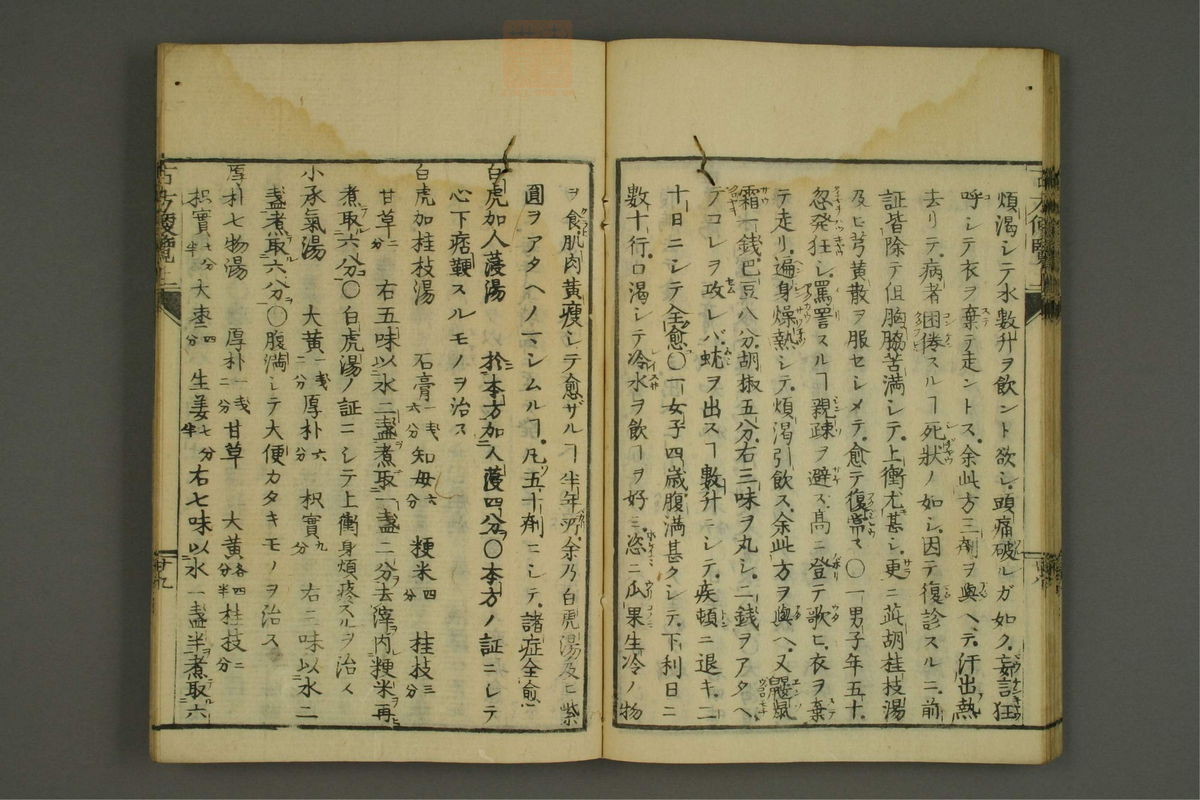 煩渇シテ水數升ヲ飲ント欲シ頭痛破ルガ如ク妄語狂
呼シテ衣ヲ棄テ走ントス余此方三劑ヲ與ヘテ汗出熱
去リテ病者困倦スルヿ死狀ノ如シ因テ復診スルニ前
証皆除テ但胸脇苦満シテ上衝尤甚シ更ニ茈胡桂枝湯
及ヒ芎黄散ヲ服セシメテ愈テ復常ス〇一男子年五十
忽発狂シ罵詈スルヿ親疎ヲ避ス髙ニ登テ歌ヒ衣ヲ棄
テ走リ遍身燥熱シテ煩渇引飲ス余此方ヲ與ヘ又鼴鼠
霜一錢巴豆八分胡椒五分右三味ヲ丸シ二錢ヲアタヘ
テコレヲ攻レバ蚘ヲ出スヿ數升ニシテ疾頓ニ退キ二
十日ニシテ全愈〇一女子四歳腹満甚クシテ下利日ニ
數十行口渇シテ冷水ヲ飲ヿヲ好ミ恣ニ瓜果生冷ノ物
ヲ食肌肉黄瘦シテ愈ザルヿ半年所余乃白虎湯及ヒ紫
圓ヲアタヘノマシムルヿ凡五十劑ニシテ諸症全愈
白虎加人薓湯　於本方加人薓四分〇本方ノ証ニシテ
心下痞鞕スルモノヲ治ス
白虎加桂枝湯　石膏一戔六分知母六分　粳米四分　桂枝三分
甘草二分　右五味以水二盞煮取一盞二分去滓内粳米再
煮取六八分〇白虎湯ノ証ニシテ上衝身煩疼スルヲ治ス
小承氣湯　大黄一戔二分厚朴六分　枳實九分　右三味以水二
盞煮取六八分〇腹満シテ大便カタキモノヲ治ス
厚朴七物湯　厚朴一戔二分甘草　大黄各四分半桂枝二分
枳實七分半大棗四分　生姜七分半　右七味以水一盞半煮取六
古方便覽上
廿九